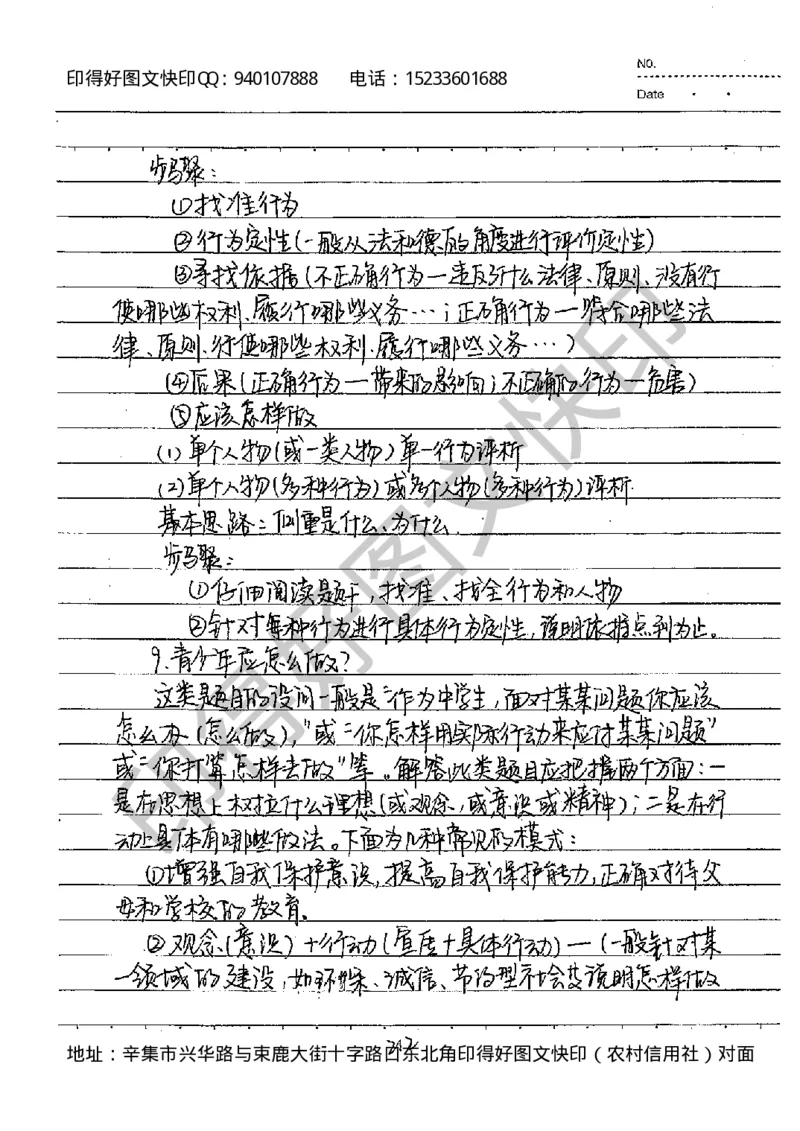 印得好图文快印QQ：940107888 电话：15233601688
NO.
Date
步骤：
①找准行为
②行为定性(一般从法和德的角度进行评价定性)
③寻找依据(不正确行为一违反了什么法律、原则、没有行
使哪些权利、履行哪些义务…；正确行为一符合哪些法
律、原则、行使哪些权利、履行哪些义务…)
④后果(正确行为一带来的影响；不正确的行为一危害)
⑤应该怎样做
(1)单个人物(或一类人物)单一行为评析
(2)单个人物(多种行为)或多个人物(多种行为)评析.
基本思路：侧重是什么、为什么.
步骤：
①仔细阅读题干，找准、找全行为和人物
②针对每种行为进行具体行为定性，说明依据点到为止。
9.青少年应怎么做?
这类题目的设问一般是“作为中学生，面对某某问题你应该
怎么办(怎么做)，”或“你怎样用实际行动来应付某某问题”
或“你打算怎样去做”等。解答此类题目应把握两个方面：一
是在思想上树立什么理想(或观念、或意识或精神)；二是在行
动上具体有哪些做法。下面为几种常见的模式：
①增强自我保护意识，提高自我保护能力，正确对待父
母和学校的教育。
②观念(意识)+行动(宣传+具体行动)一(一般针对某
一领域的建设，如环保、诚信、节约型社会等说明怎样做
242
地址：辛集市兴华路与束鹿大街十字路口东北角印得好图文快印（农村信用社）对面
印得好图文快印